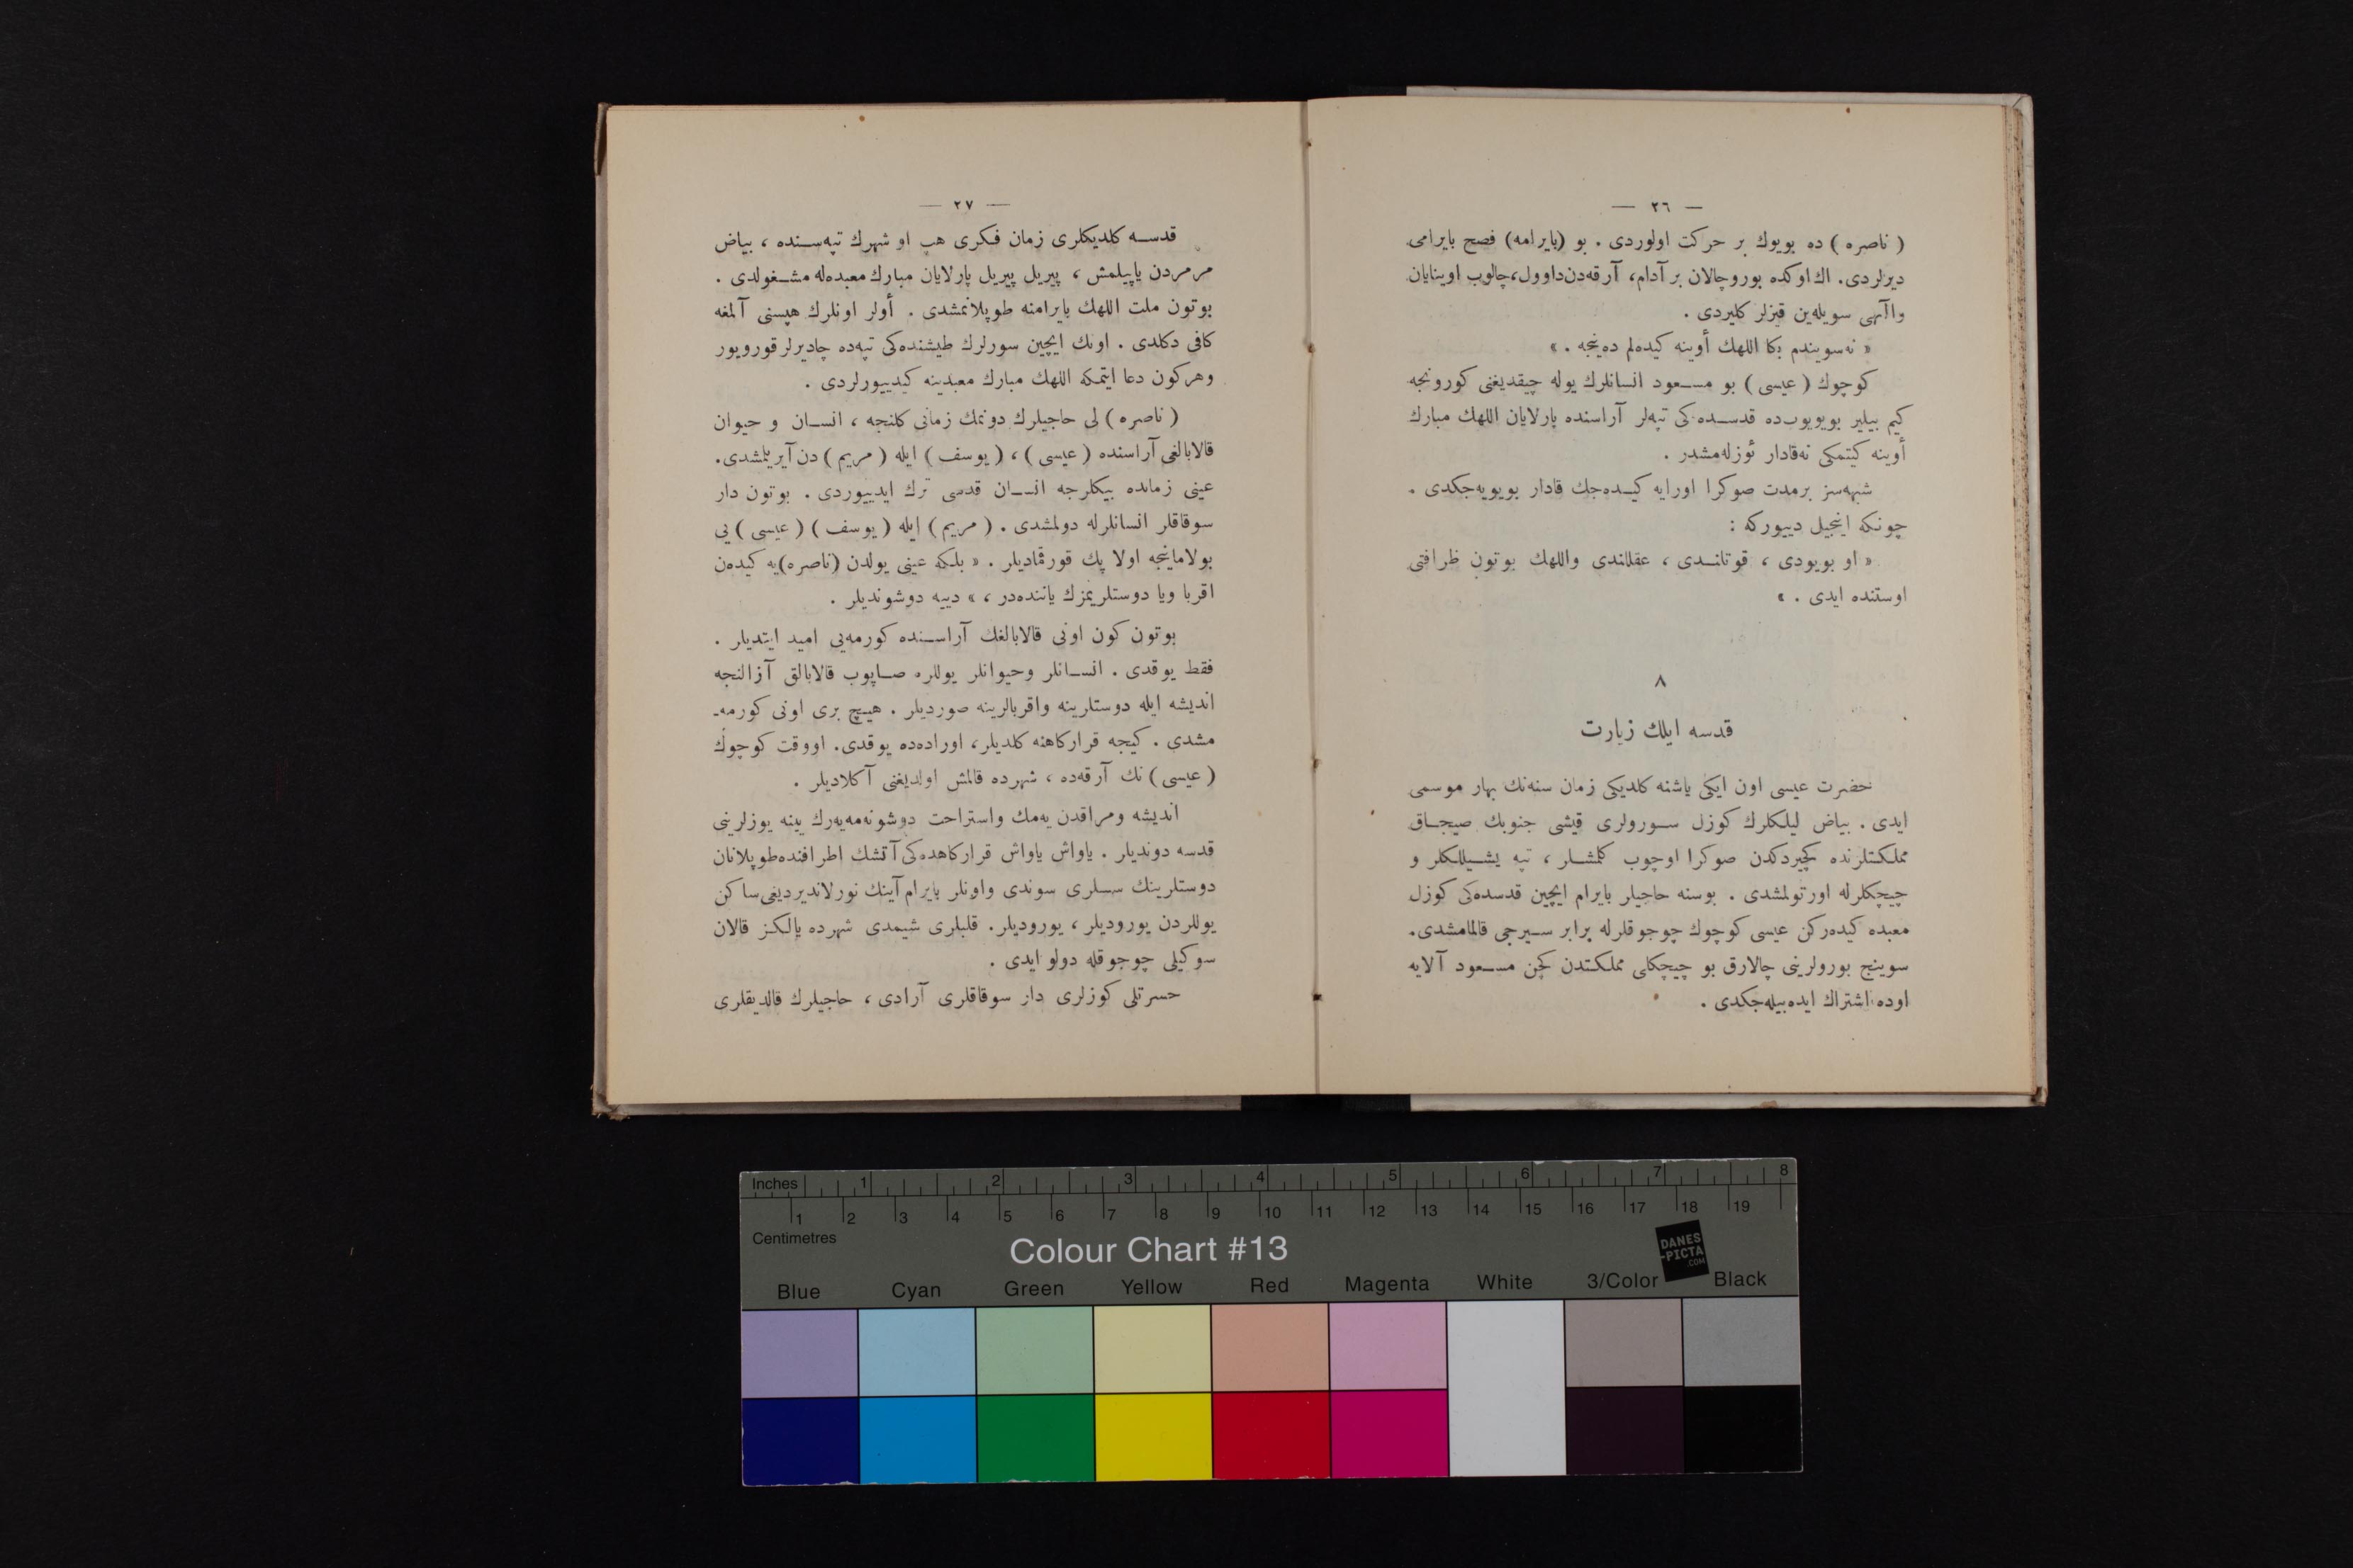 — ٢٦ —
( ناصره ) ده بويوك بر حركت اولوردى . بو (بايرامه) فصح بايرامى
ديرلردى. اك اوكده بوروچالان بر آدام، آرقه‌دن‌داوول،چالوب اوينايان
واآلهى سويله‌ين قيزلر كليردى .
« نه‌سويندم بكا اللهك أوينه كيده‌لم ده‌ينجه . »
كوچوك ( عيسى ) بو مسعود انسانلرك يوله چيقديغنى كورونجه
كيم بيلير بويويوب‌ده قدسده‌كى تپه‌لر آراسنده پارلايان اللهك مبارك
أوينه كيتمكى نه‌قادار ئوزله‌مشدر .
شبهه‌سز برمدت صوكرا اورايه كيده‌جك قادار بويويه‌جكدى .
چونكه اينجيل دييوركه :
« او بويودى ، قوتلندى ، عقللندى واللهك بوتون ظرافتى
اوستنده ايدى . »
٨
قدسه ايلك زيارت
حضرت عيسى اون ايكى ياشنه كلديكى زمان سنه‌نك بهار موسمى
ايدى . بياض ليلكلرك كوزل سورولرى قيشى جنوبك صيجاق
مملكتلرنده كچيردكدن صوكرا اوچوب كلمشلر ، تپه يشيللكلر و
چيچكلرله اورتولمشدى . بوسنه حاجيلر بايرام ايچين قدسده‌كى كوزل
معبده كيده‌ركن عيسى كوچوك چوجوقلرله برابر سيرجى قالمامشدى.
سوينج بورولرينى چالارق بو چيچكلى مملكتدن كچن مسعود آلايه
اوده اشتراك ايده‌بيله‌جكدى .
— ٢٧ —
قدسه كلديكلرى زمان فكرى هپ او شهرك تپه‌سنده ، بياض
مرمردن ياپيلمش ، پيريل پيريل پارلايان مبارك معبده‌له مشغولدى .
بوتون ملت اللهك بايرامنه طوپلانمشدى . أولر اونلرك هپسنى آلمغه
كافى دكلدى . اونك ايچين سورلرك طيشنده‌كى تپه‌ده چاديرلر قورويور
وهركون دعا ايتمكه اللهك مبارك معبدينه كيدييورلردى .
( ناصره ) لى حاجيلرك دونمك زمانى كلنجه ، انسان و حيوان
قالابالغى آراسنده ( عيسى ) ، ( يوسف ) ايله ( مريم ) دن آيريلمشدى.
عينى زمانده بيكلرجه انسان قدسى ترك ايدييوردى . بوتون دار
سوقاقلر انسانلرله دولمشدى . ( مريم ) ايله ( يوسف ) ( عيسى ) يى
بولاماينجه اولا پك قورقماديلر . « بلكه عينى يولدن (ناصره)يه كيدەن
اقربا ويا دوستلريمزك ياننده‌در ، » دييه دوشونديلر .
بوتون كون اونى قالابالغك آراسنده كورمه‌يى اميد ايتديلر .
فقط يوقدى . انسانلر وحيوانلر يوللره صاپوب قالابالق آزالنجه
انديشه ايله دوستلرينه واقربالرينه صورديلر . هيچ برى اونى كورمه‌ـ
مشدى . كيجه قراركاهنه كلديلر، اوراده‌ده يوقدى. اووقت كوچوك
( عيسى ) نك آرقه‌ده ، شهرده قالمش اولديغنى آكلاديلر .
انديشه ومراقدن يه‌مك واستراحت دوشونه‌مه‌يه‌رك يينه يوزلرينى
قدسه دونديلر . ياواش ياواش قراركاهده‌كى آتشك اطرافنده‌طوپلانان
دوستلرينك سسلرى سوندى واونلر بايرام آينك نورلانديرديغى‌ساكن
يوللردن يوروديلر ، يوروديلر. قلبلرى شيمدى شهرده يالكز قالان
سوكيلى چوجوقله دولو ايدى .
حسرتلى كوزلرى دار سوقاقلرى آرادى ، حاجيلرك قالديقلرى
Inches 1 2 3 4 5 6 7 8
1 2 3 4 5 6 7 8 9 10 11 12 13 14 15 16 17 18 19
Centimetres
Colour Chart #13
DANES
-PICTA
.COM
Blue Cyan Green Yellow Red Magenta White 3/Color Black